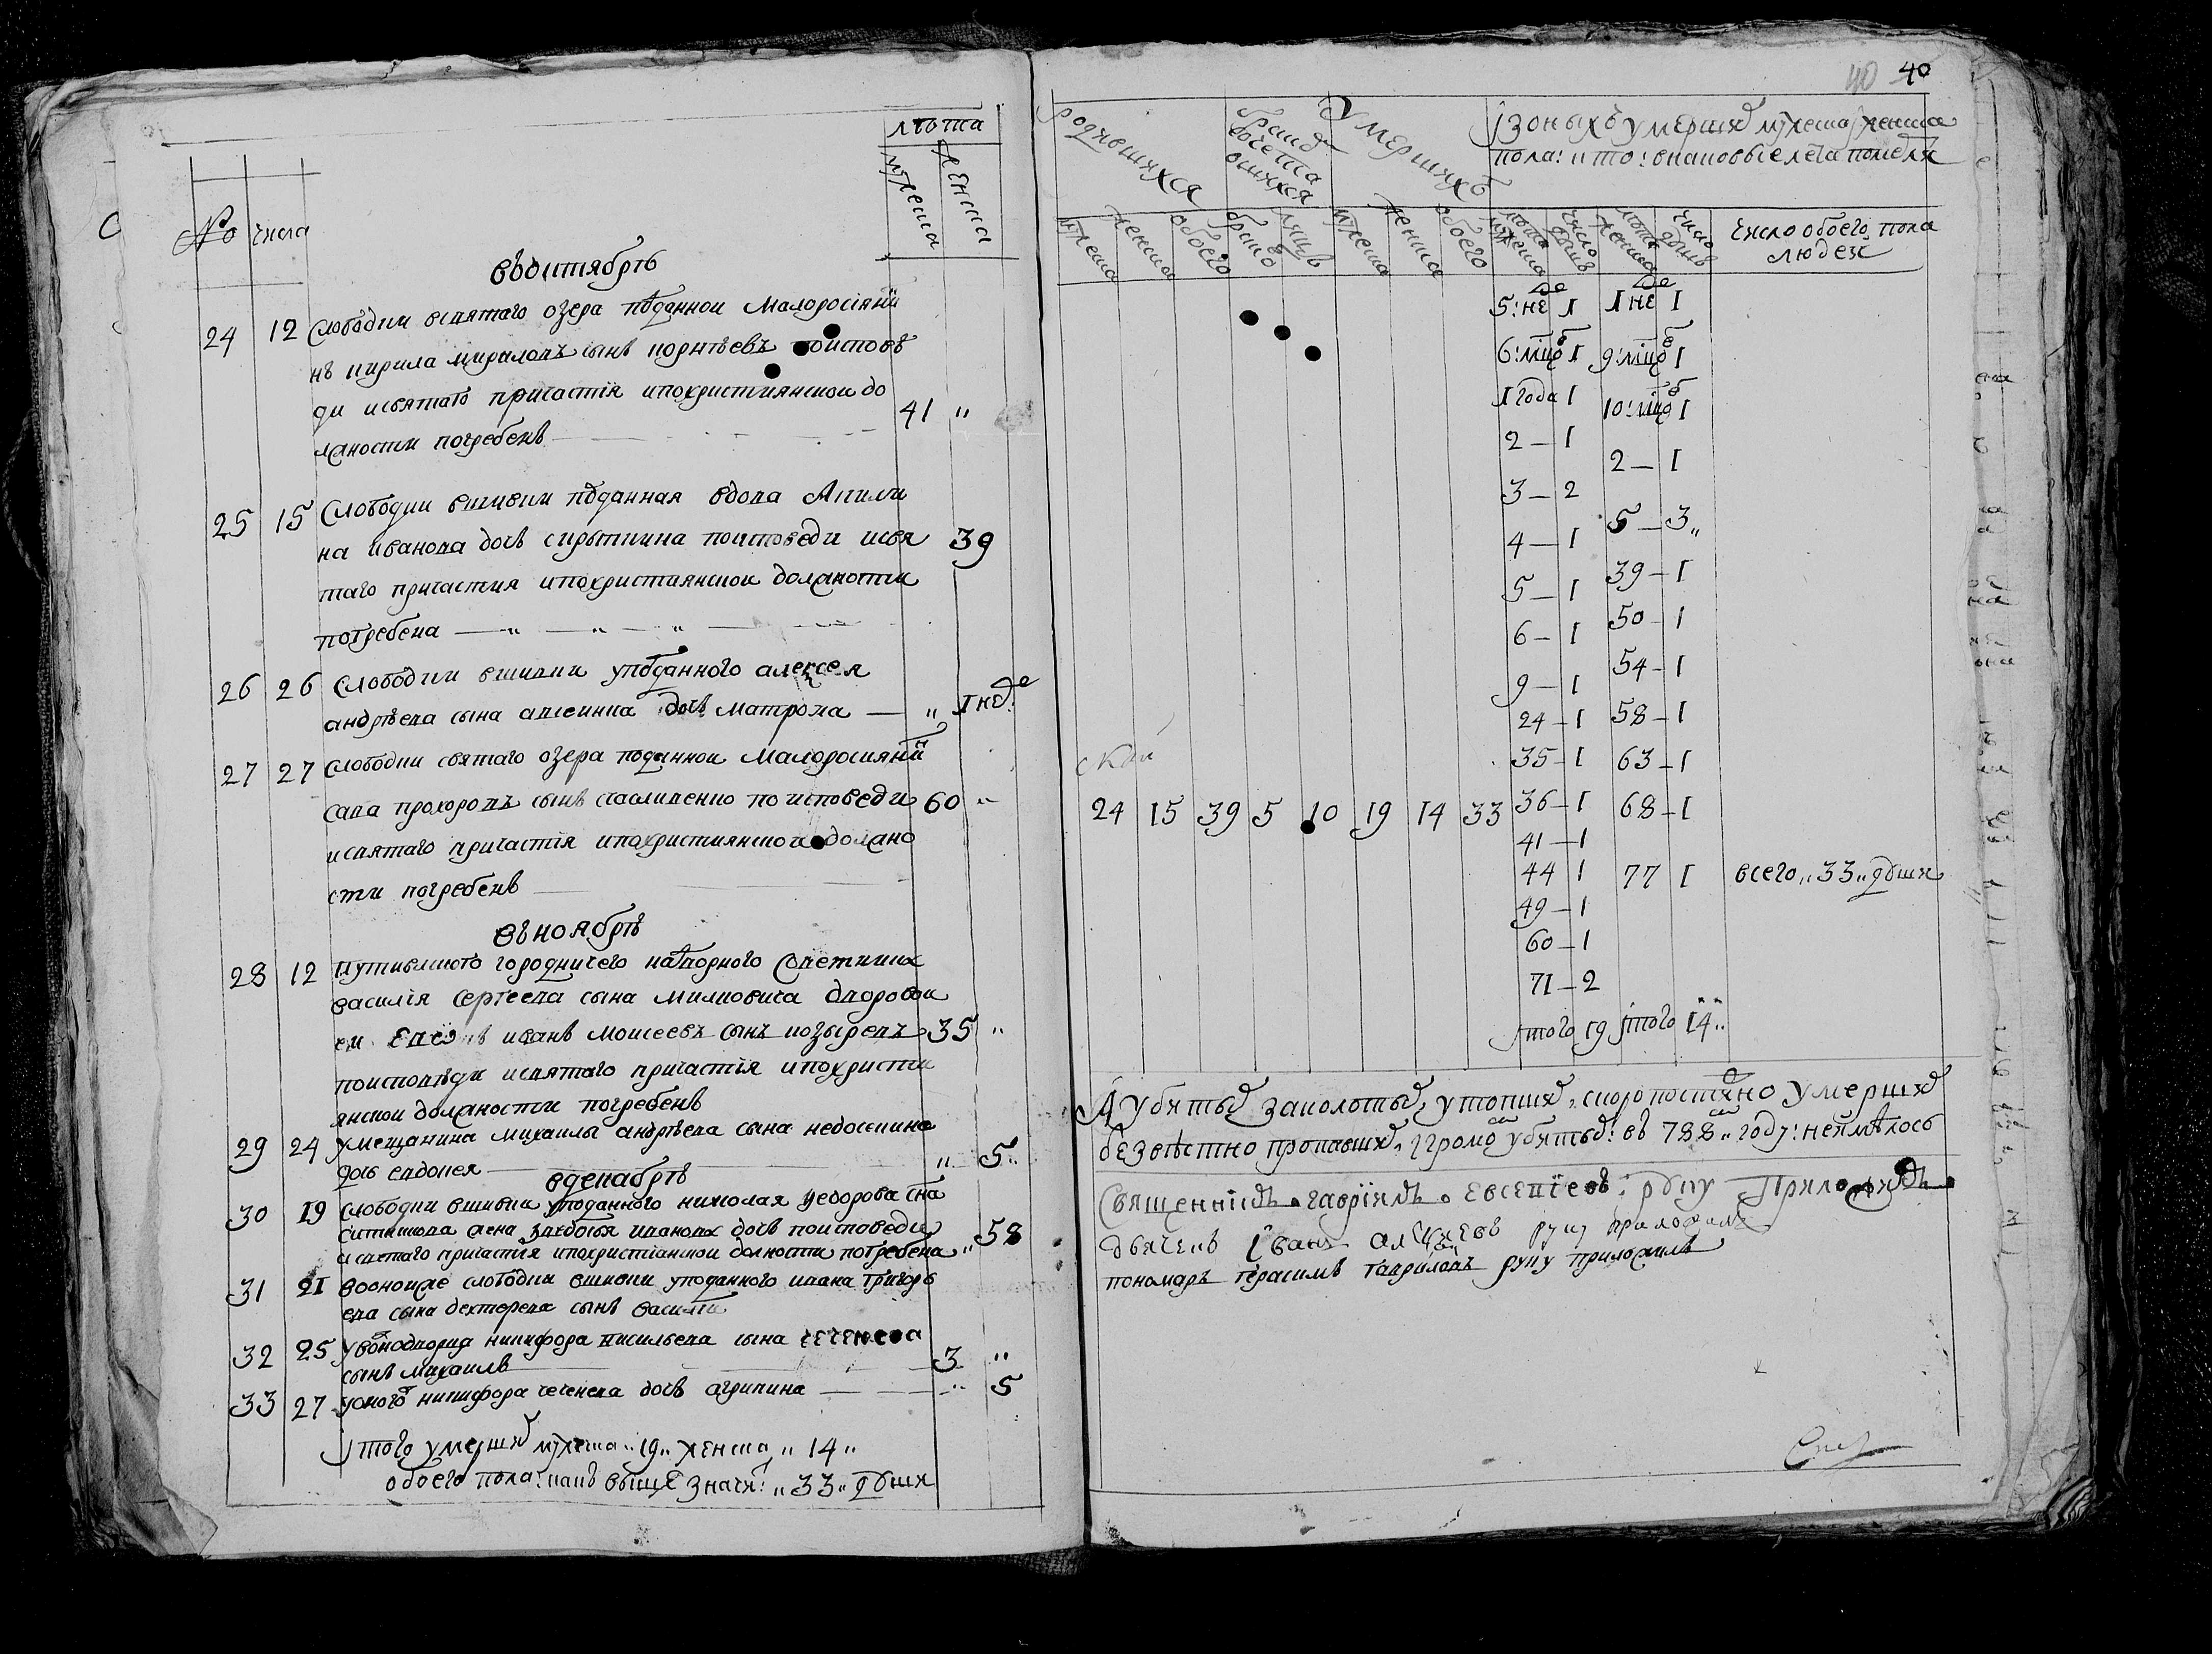 лѣта
мужеска женска
№ числа
въоктябрѣ
24 12 Слободки святаго озера пѡданнои Малоросіяни
нъ кирила кириловъ сынъ корнѣевъ поисповѣ
ди исвятаго причастія ипохристиянскои до
лжности погребенъ 41 "
25 15 Слободки вшивки пѡданная вдова Акили
на иванова дочь поисповеди исвя 39
таго причастия ипохристиянскои должности
погребена
26 26 Слободки вшивки упѡданного алексея
андрѣева сына дочь матрона — " 1 нед:
27 27 слободки святаго озера поданнои малоросиянин
сава прохоровъ сынъ поисповеди 60 "
исвятаго причастія ипохристиянскои должно
сти погребенъ
въноябрѣ
28 12 Путивлского городничего надворного Советника
василія Сергеева сына милковича дворовои
ево иванъ моисеевъ сынъ козыревъ 35 "
поисповѣди исвятаго причастія ипохристи
янскои должности погребенъ
29 24 умещанина михаилы андрѣева сына недосекина
дочь евдокея " 5"
вдекабрѣ
30 19 слободки вшивки уподанного николая федорова сна
жена иванова дочь поисповеди
исвятаго причастія ипохристіанскои должности погребена " 58
31 21 воонойже слободки вшивки уподанного ивана григорь
ева сына дехтерева сынъ василий
32 25 никифора васильева сына чеченева
сынъ михаилъ 3 "
33 27 уоного никифора чеченева дочь агрипина — " 5
Итого умершихъ мужеска "19" женска "14"
обоего пола: какъ выше значитъ: "33" дѹши
40 40
родившихся
бракомъ сочетавшихся
Умершихъ
Изоныхъ умершихъ мужеска женска
пола: кто: вкаковые лета помеля
мужеска женска обоего браковъ лицъ мужеска женска обоего лѣта мужеска число душъ лѣта женска число душъ Число обоего пола
людеи
5: не 1 1 не 1
6: мцъ 1 9: мцъ 1
1 года 1 10: мцъ 1
2 — 1 2 — 1
3 — 2 5 — 3"
4 — 1 39 — 1
5 — 1 50 — 1
6 — 1 54 — 1
9 — 1 58 — 1
24 — 1 63 — 1
35 — 1 68 — 1
24 15 39 5 10 19 14 33 36 — 1
41 — 1
44 1 77 1 всего "33" дѹши
49 — 1
60 — 1
71 — 2
Итого 19 Итого 14"
А убитыхъ заколотыхъ, утопшихъ, скоропостижно умершихъ
безвѣстно пропавшихъ, Iгромомъ убитыхъ: въ 788 "году: неимѣлось
Священникъ гавріилъ евсевіевъ руку Приложилъ
дьячекъ Iванъ руку приложилъ
пономарь герасимъ гавриловъ руку приложилъ